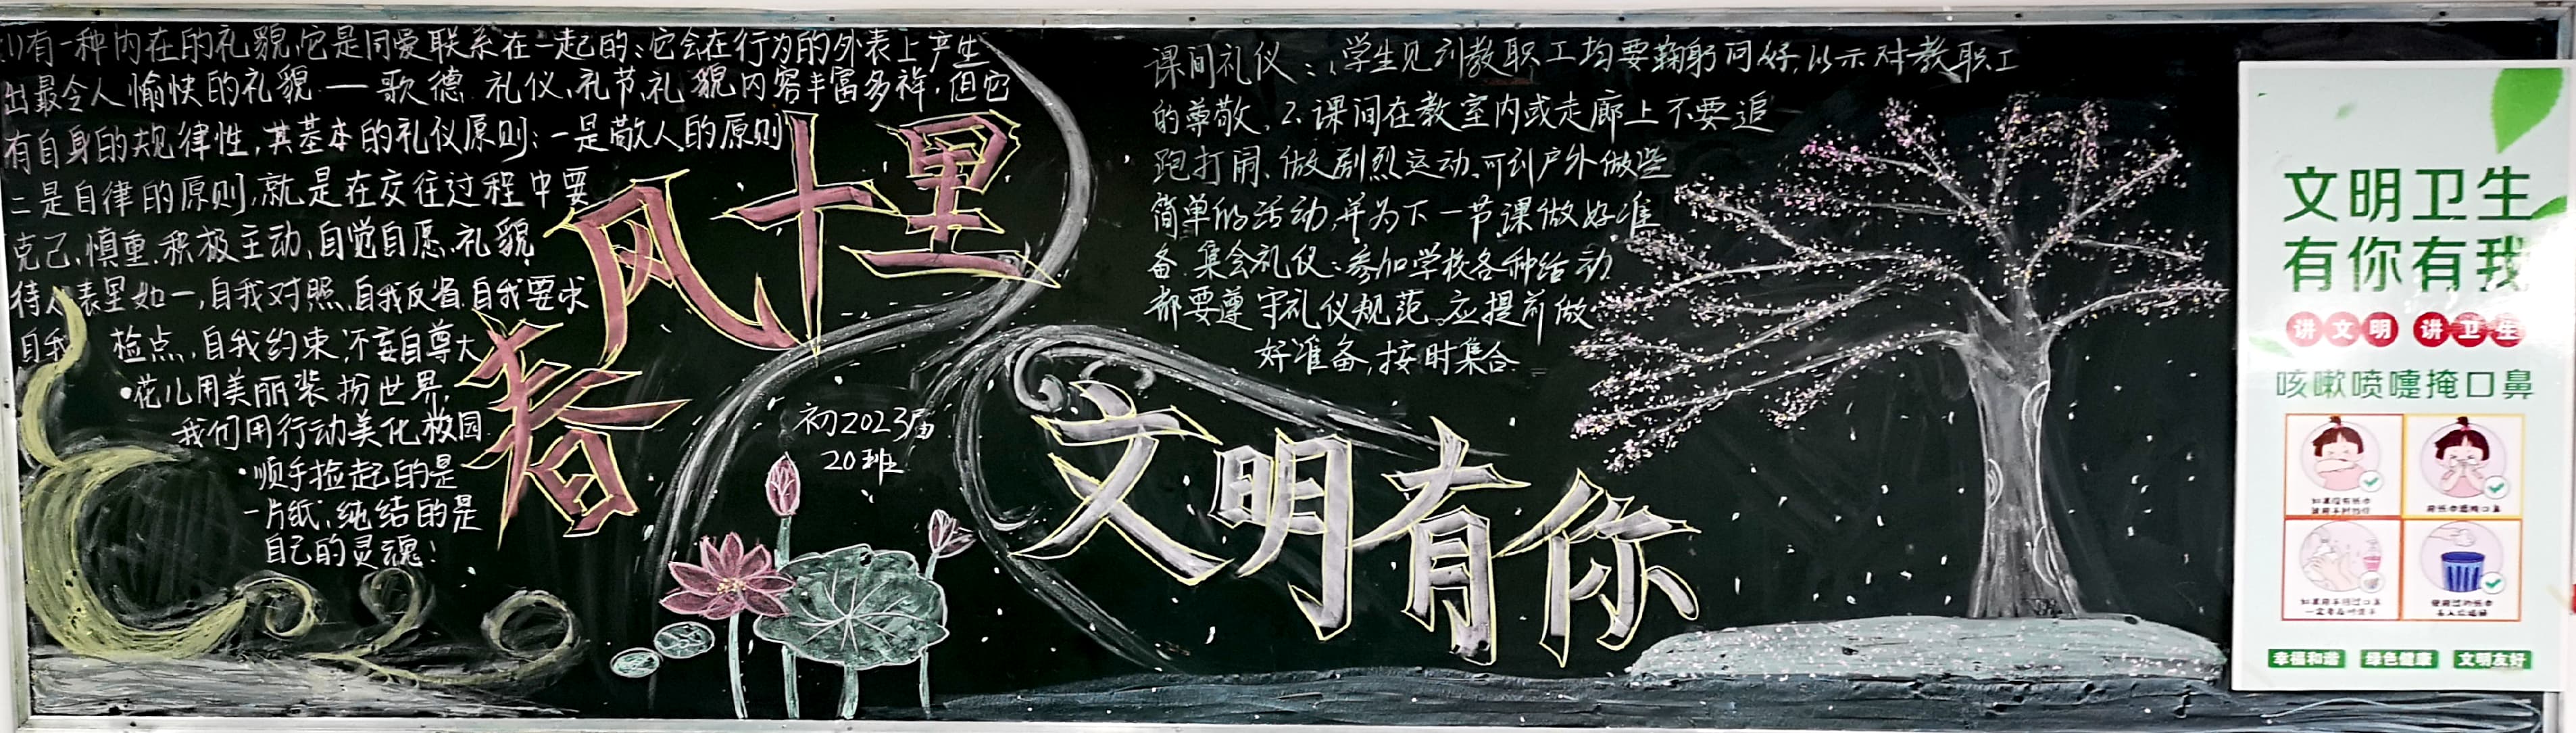 (1)有一种内在的礼貌,它是同爱联系在一起的:它会在行为的外表上产生
出最令人愉快的礼貌——歌德 礼仪、礼节、礼貌内容丰富多样,但它
有自身的规律性,其基本的礼仪原则:一是敬人的原则
二是自律的原则,就是在交往过程中要
克己、慎重、积极主动、自觉自愿、礼貌
待人、表里如一,自我对照、自我反省、自我要求
自我 检点、自我约束,不妄自尊大
·花儿用美丽装扮世界,
我们用行动美化校园.
·顺手捡起的是
一片纸,纯结的是
自己的灵魂!
春风十里
初2023届
20班
文明有你
课间礼仪:1.学生见到教职工均要鞠躬问好,以示对教职工
的尊敬、2.课间在教室内或走廊上不要追
跑打闹、做剧烈运动、可到户外做些
简单的活动,并为下一节课做好准
备.集会礼仪:参加学校各种活动
都要遵守礼仪规范.应提前做
好准备,按时集合
文明卫生
有你有我
讲文明 讲卫生
咳嗽喷嚏掩口鼻
幸福和谐 绿色健康 文明友好